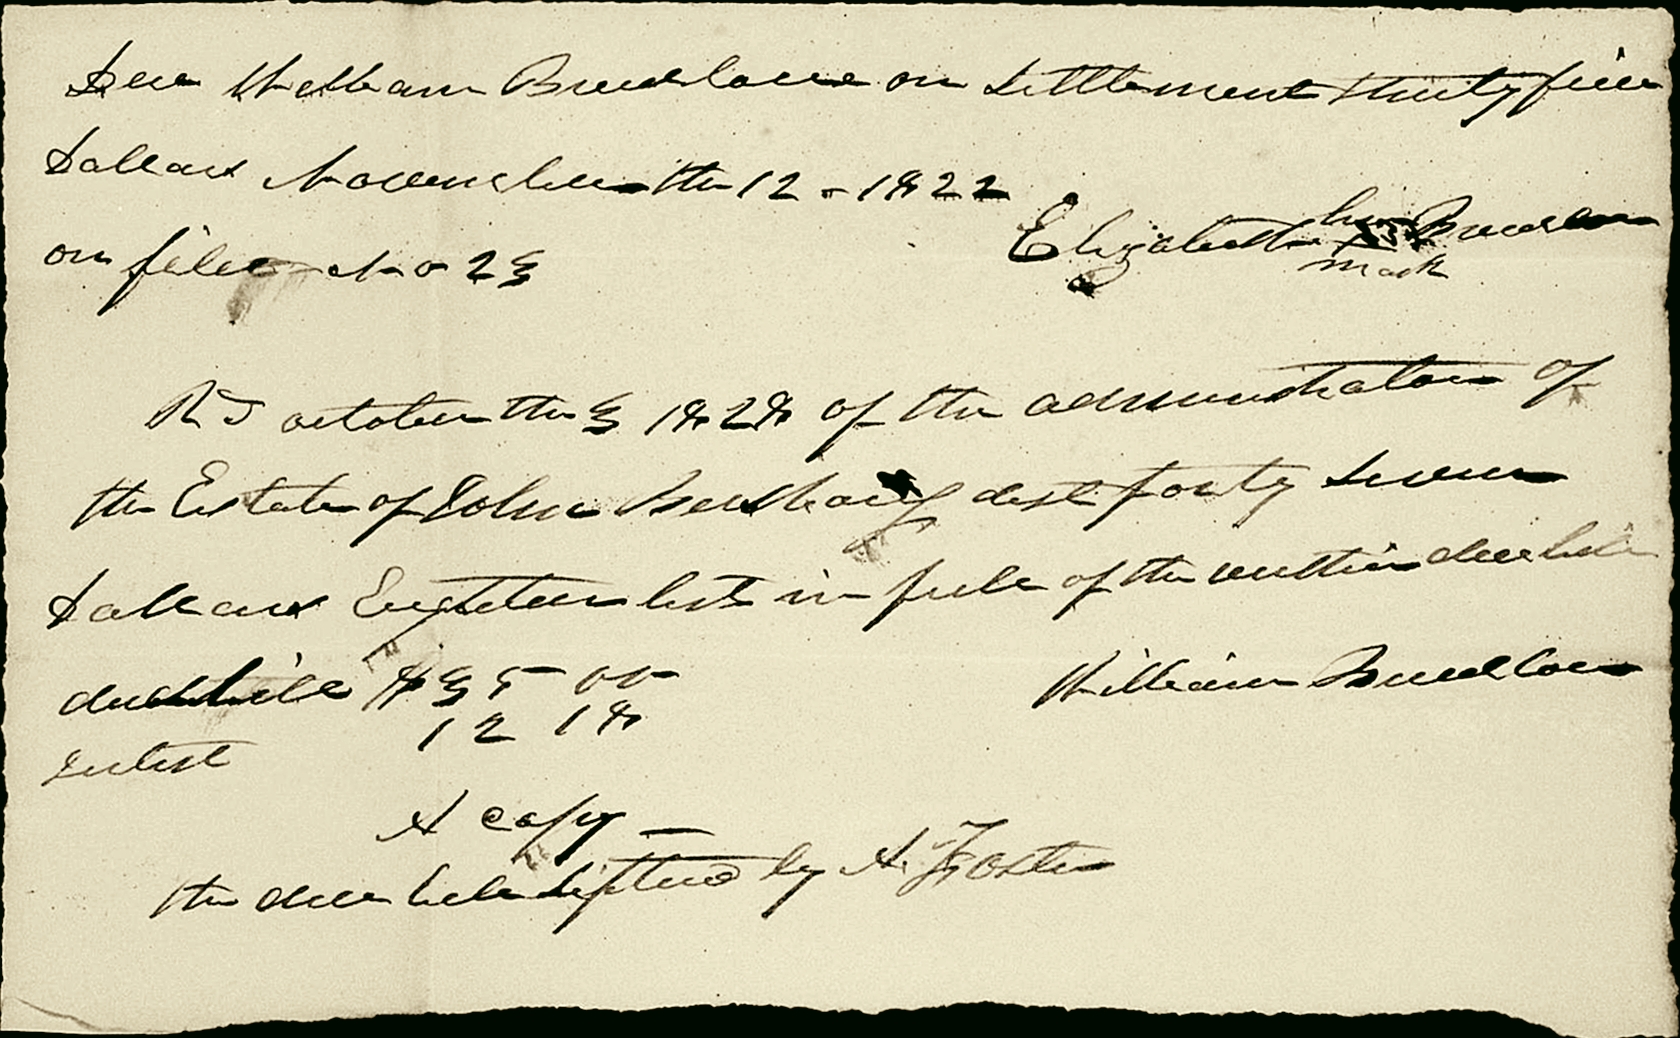 Due William Breedlove on Settlement thirty five
Dollars November the 12 - 1822
on file No 23
Elizabeth her X Breedlove
mark
Rd october the 3 1828 of the administrator of
the Estate of John desd forty seven
Dollars Eighteen cts in full of the within due bill
William Breedlove
due bill $35 00
12 18
Intest
A copy —
the due bill lifted by A. Foster